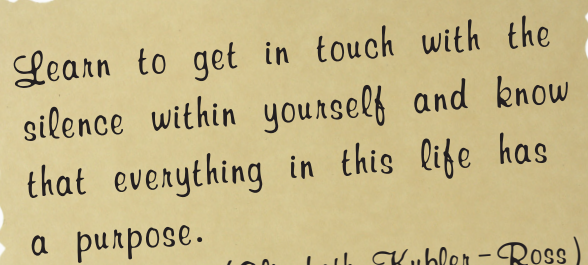 Learn to get in touch with the
silence within yourself and know
that everything in this life has
a purpose.
Kubler-Ross)